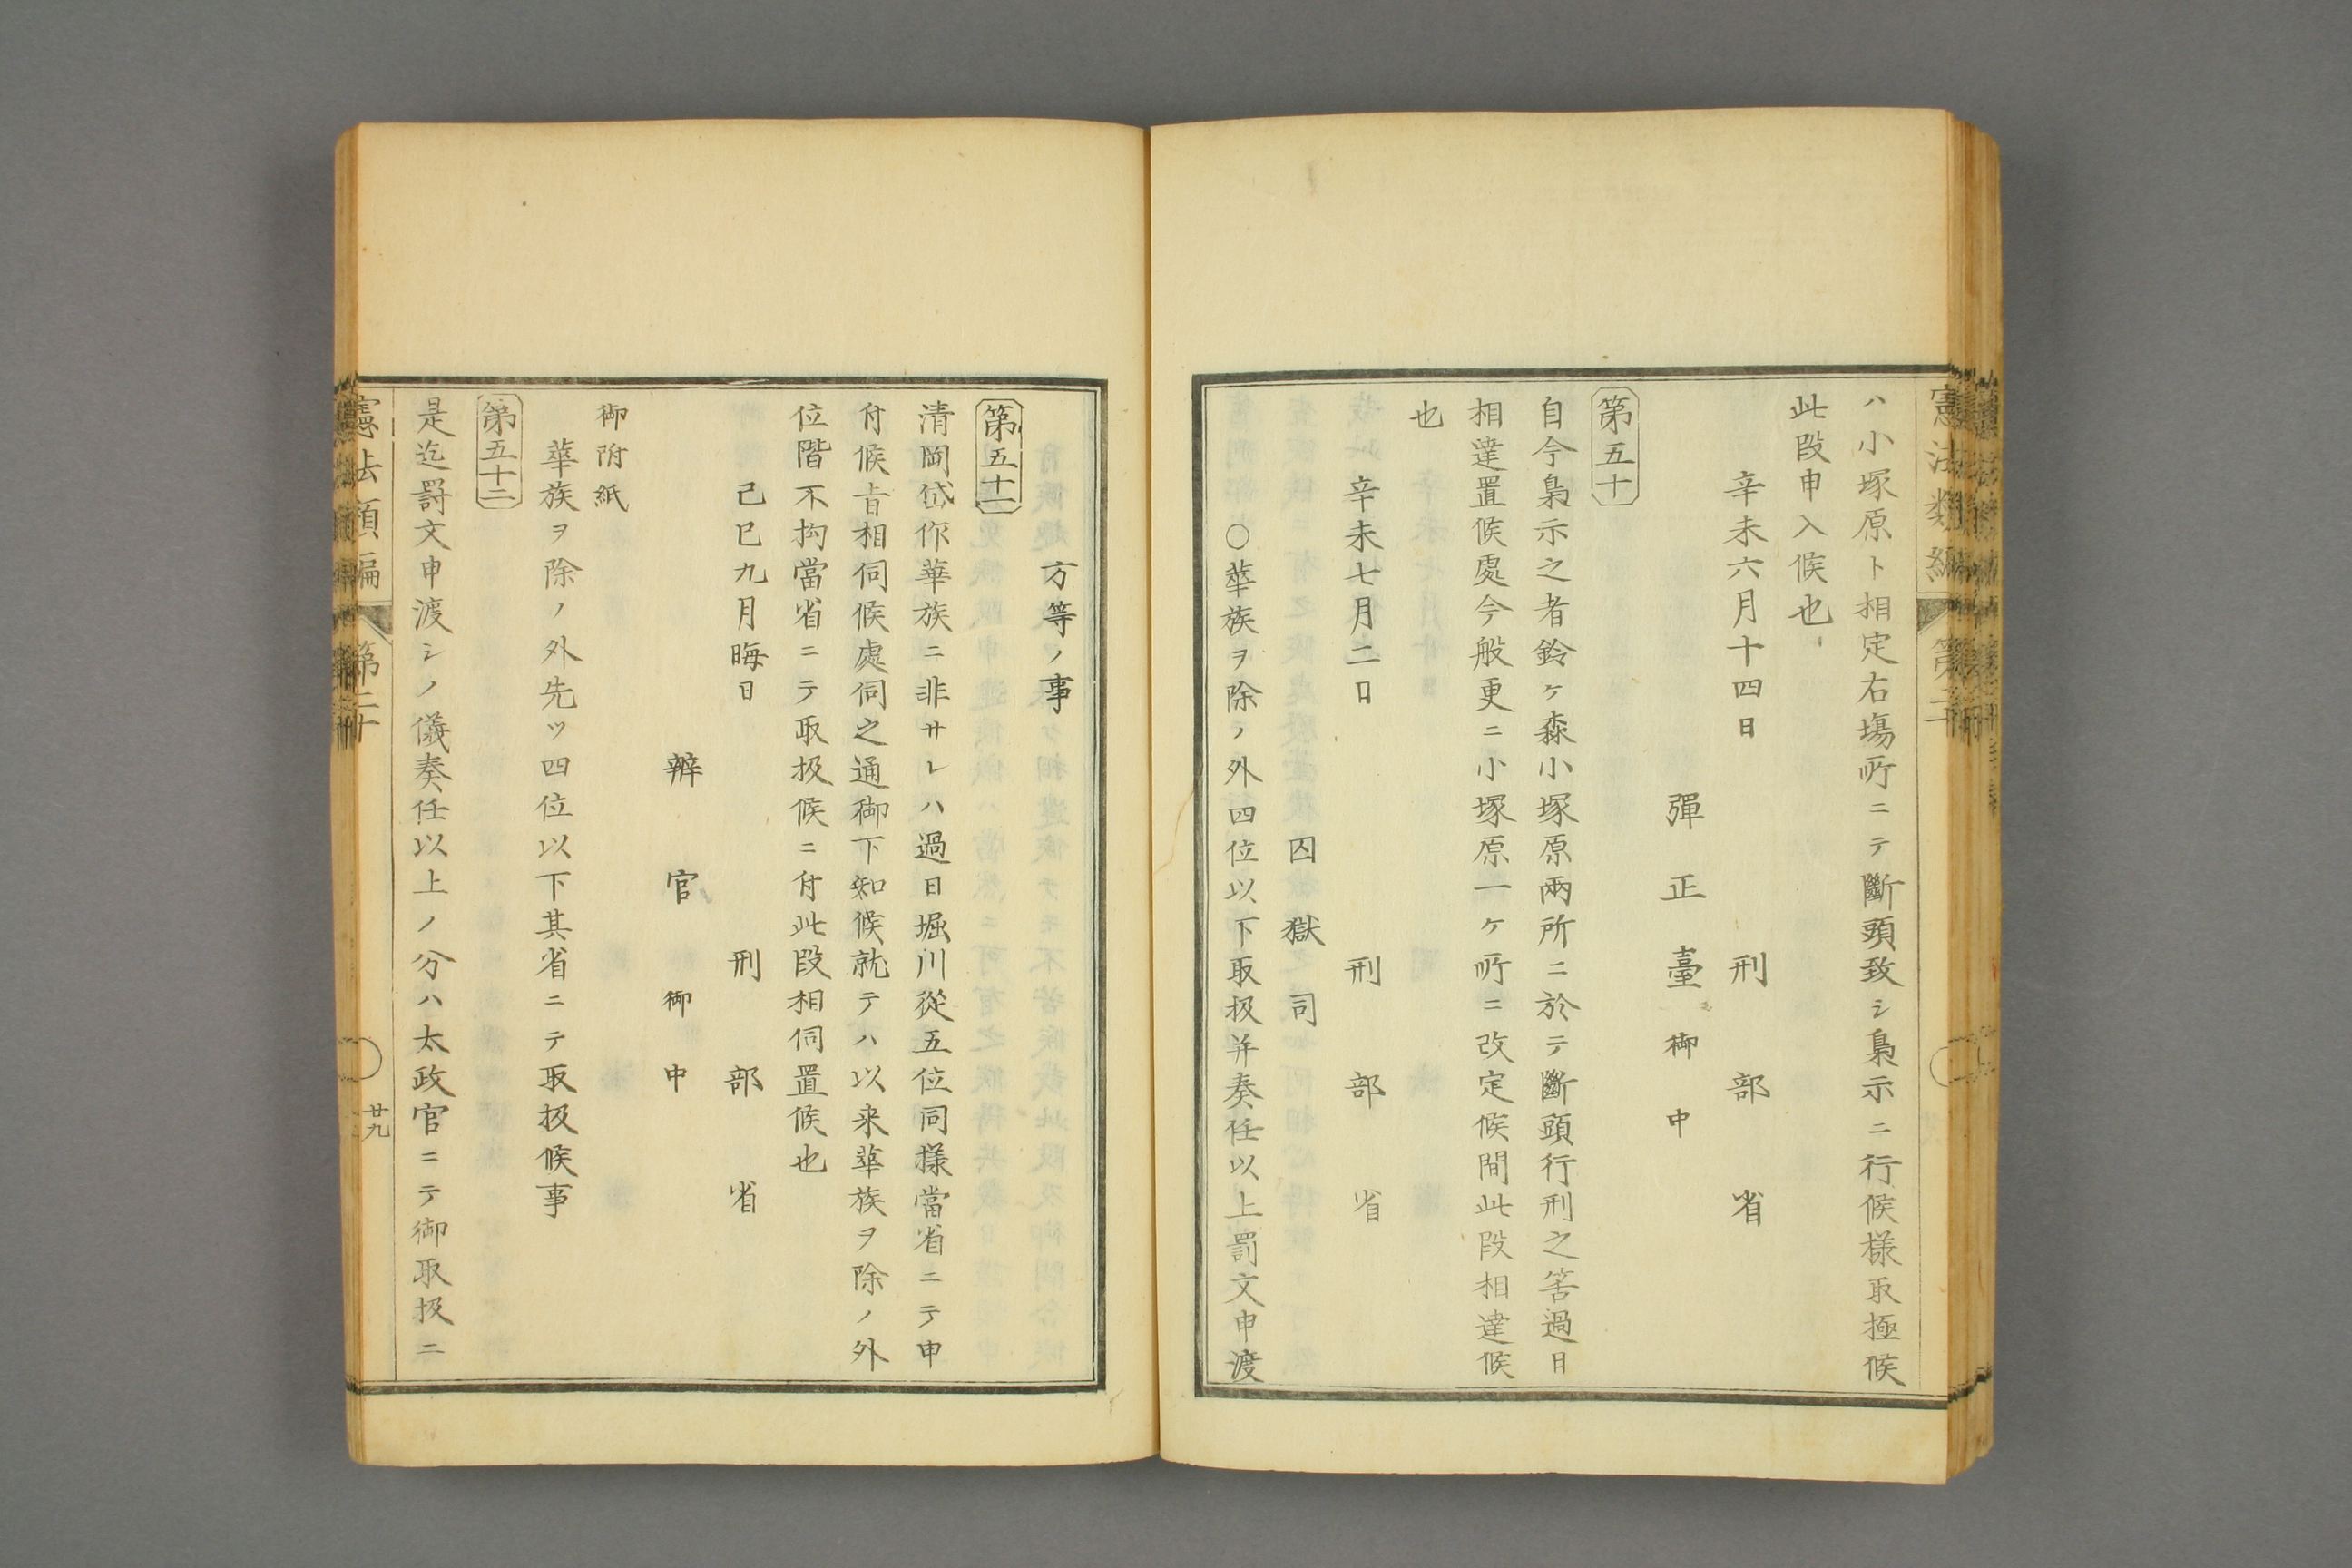 ハ小塚原ト相定右塲所ニテ斷頭致シ梟示ニ行候様取極候
此段申入候也
辛未六月十四日
刑部省
彈正臺御中
第五十
自今梟示之者鈴ケ森小塚原兩所ニ於テ斷頭行刑之筈過日
相達置候處今般更ニ小塚原一ケ所ニ改定候間此段相達候
也
辛未七月二日
刑部省
囚獄司
○華族ヲ除ノ外四位以下取扱并奏任以上罰文申渡
方等ノ事
第五十一
清岡岱作華族ニ非サレハ過日堀川從五位同様當省ニテ申
付候㫖相伺候處伺之通御下知候就テハ以来華族ヲ除ノ外
位階不拘當省ニテ取扱候ニ付此段相伺置候也
己巳九月晦日
刑部省
辨官御中
御附紙
華族ヲ除ノ外先ツ四位以下其省ニテ取扱候事
第五十二
是迄罸文申渡シノ儀奏任以上ノ分ハ太政官ニテ御取扱ニ
憲法類編
第二十
廿九